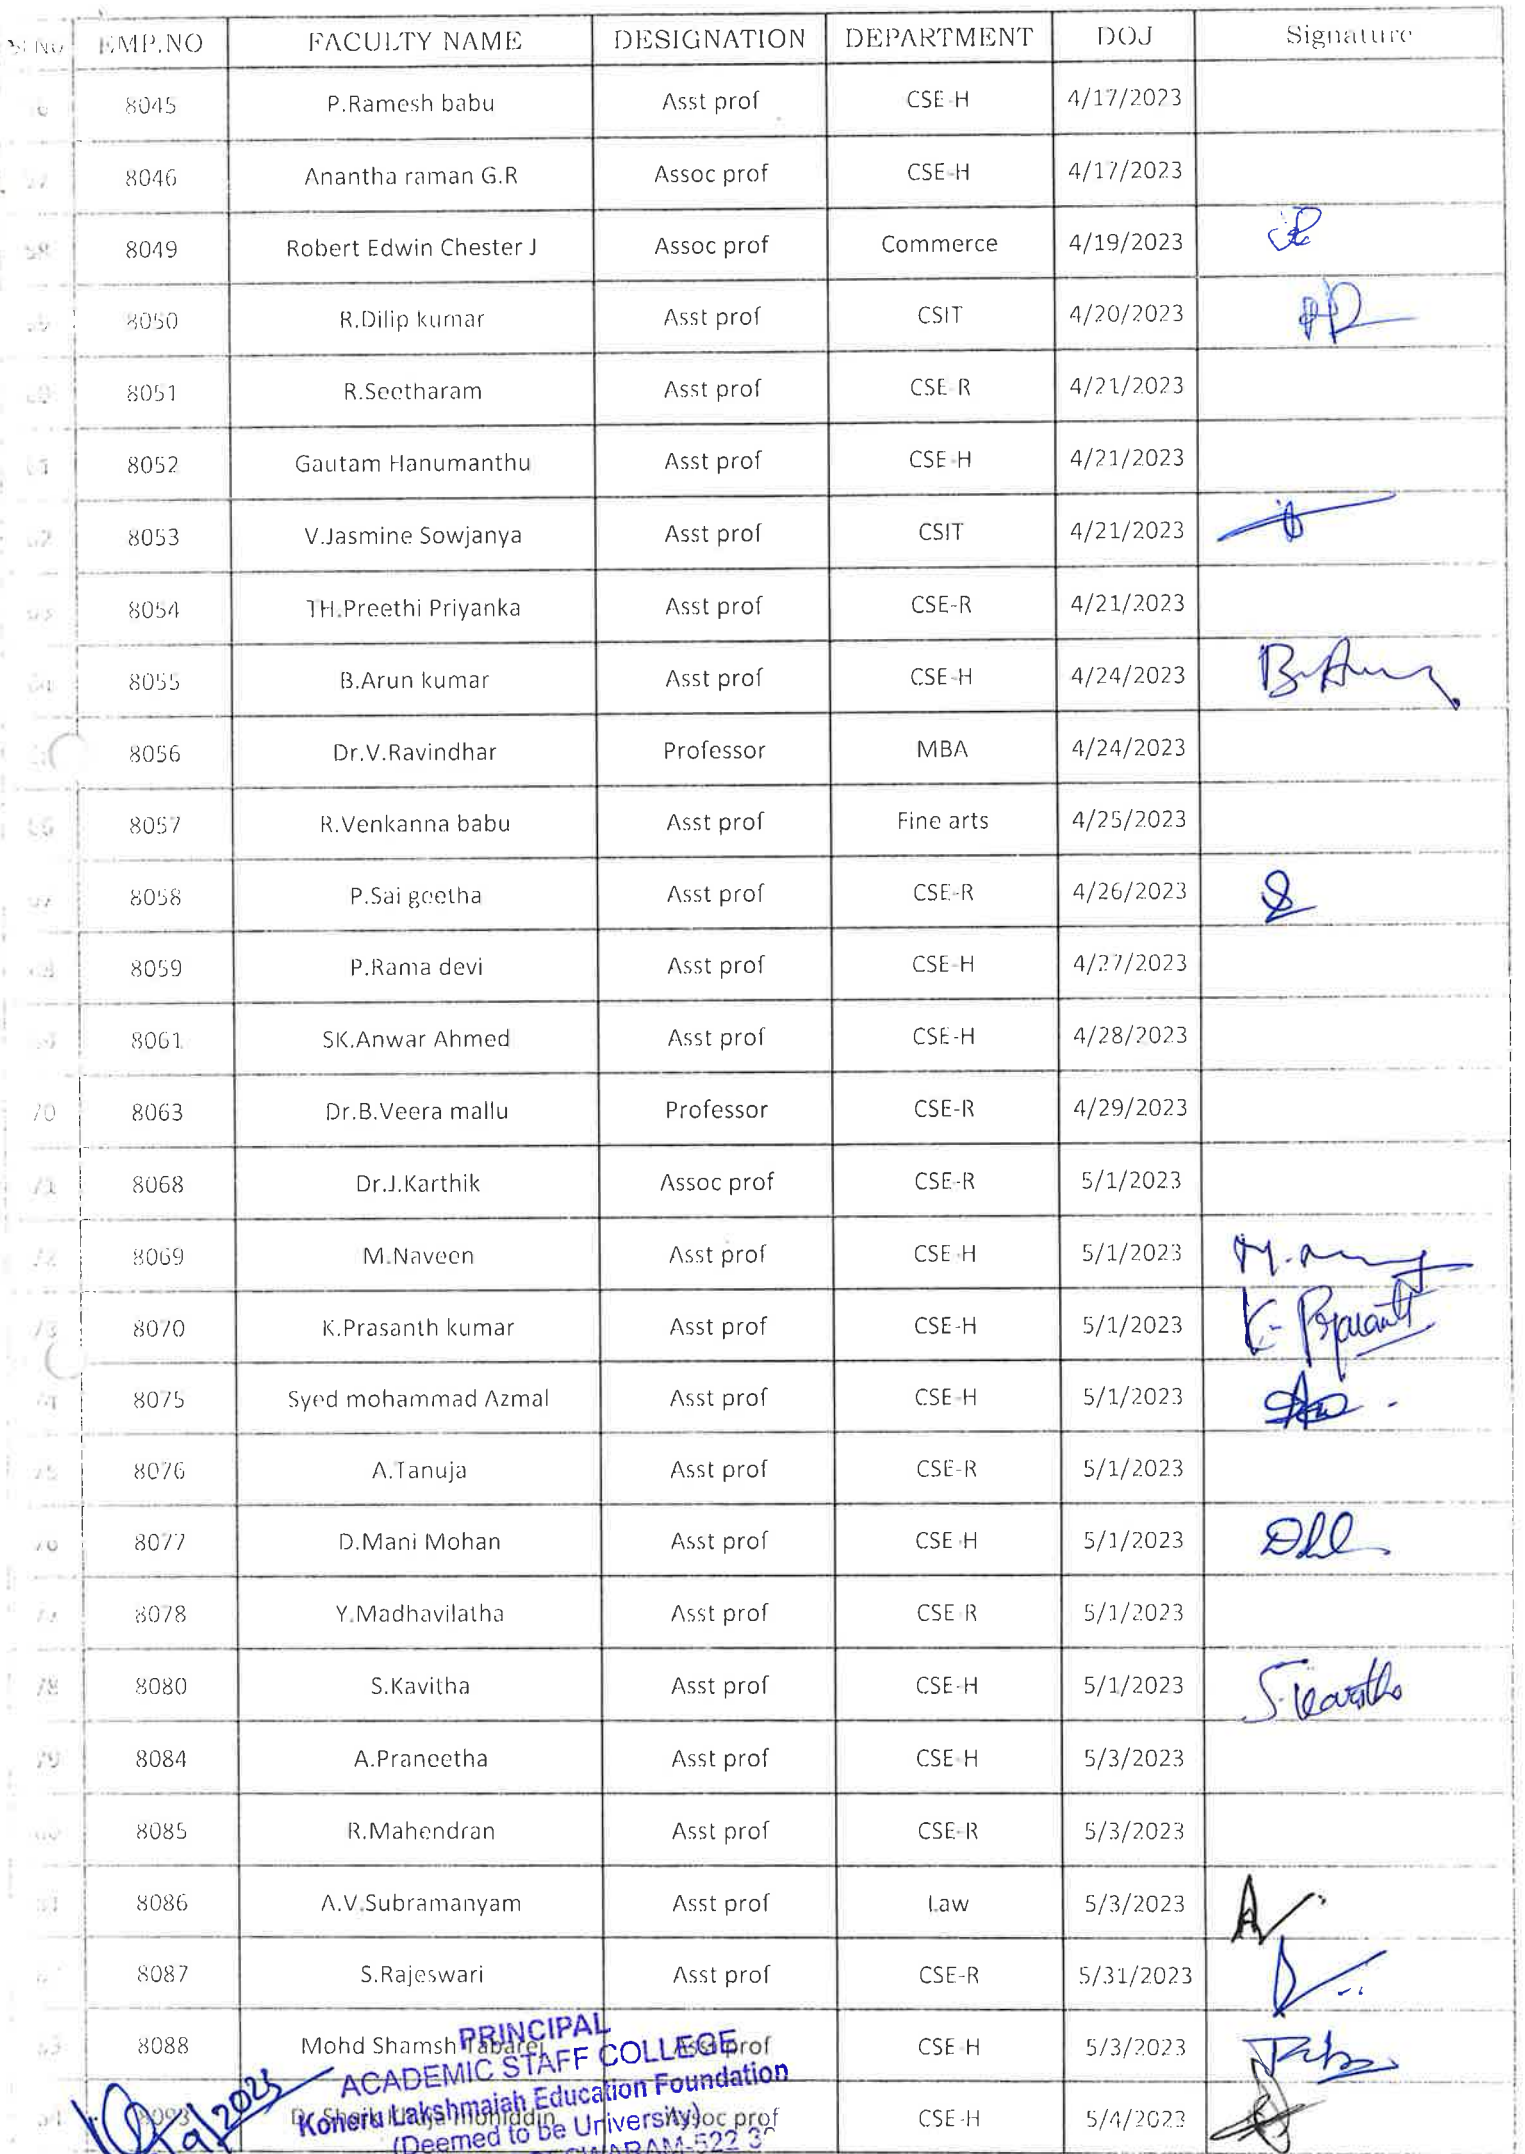 Sl NO EMP.NO FACULTY NAME DESIGNATION DEPARTMENT DOJ Signature
8045 P.Ramesh babu Asst prof CSE-H 4/17/2023
8046 Anantha raman G.R Assoc prof CSE-H 4/17/2023
58 8049 Robert Edwin Chester J Assoc prof Commerce 4/19/2023
8050 R.Dilip kumar Asst prof CSIT 4/20/2023
8051 R.Seetharam Asst prof CSE-R 4/21/2023
8052 Gautam Hanumanthu Asst prof CSE-H 4/21/2023
62 8053 V.Jasmine Sowjanya Asst prof CSIT 4/21/2023
8054 TH.Preethi Priyanka Asst prof CSE-R 4/21/2023
64 8055 B.Arun kumar Asst prof CSE-H 4/24/2023 B.Arun
8056 Dr.V.Ravindhar Professor MBA 4/24/2023
66 8057 R.Venkanna babu Asst prof Fine arts 4/25/2023
8058 P.Sai geetha Asst prof CSE-R 4/26/2023
68 8059 P.Rama devi Asst prof CSE-H 4/27/2023
8061 SK.Anwar Ahmed Asst prof CSE-H 4/28/2023
70 8063 Dr.B.Veera mallu Professor CSE-R 4/29/2023
71 8068 Dr.J.Karthik Assoc prof CSE-R 5/1/2023
72 8069 M.Naveen Asst prof CSE-H 5/1/2023
73 8070 K.Prasanth kumar Asst prof CSE-H 5/1/2023 K. Prasanth
8075 Syed mohammad Azmal Asst prof CSE-H 5/1/2023
75 8076 A.Tanuja Asst prof CSE-R 5/1/2023
76 8077 D.Mani Mohan Asst prof CSE-H 5/1/2023
8078 Y.Madhavilatha Asst prof CSE-R 5/1/2023
78 8080 S.Kavitha Asst prof CSE-H 5/1/2023 S.Kavitha
79 8084 A.Praneetha Asst prof CSE-H 5/3/2023
8085 R.Mahendran Asst prof CSE-R 5/3/2023
8086 A.V.Subramanyam Asst prof Law 5/3/2023
8087 S.Rajeswari Asst prof CSE-R 5/31/2023
83 8088 Mohd Shamsh Tabarej Asst prof CSE-H 5/3/2023
8093 Assoc prof CSE-H 5/4/2023
PRINCIPAL
ACADEMIC STAFF COLLEGE
Koneru Lakshmaiah Education Foundation
(Deemed to be University)